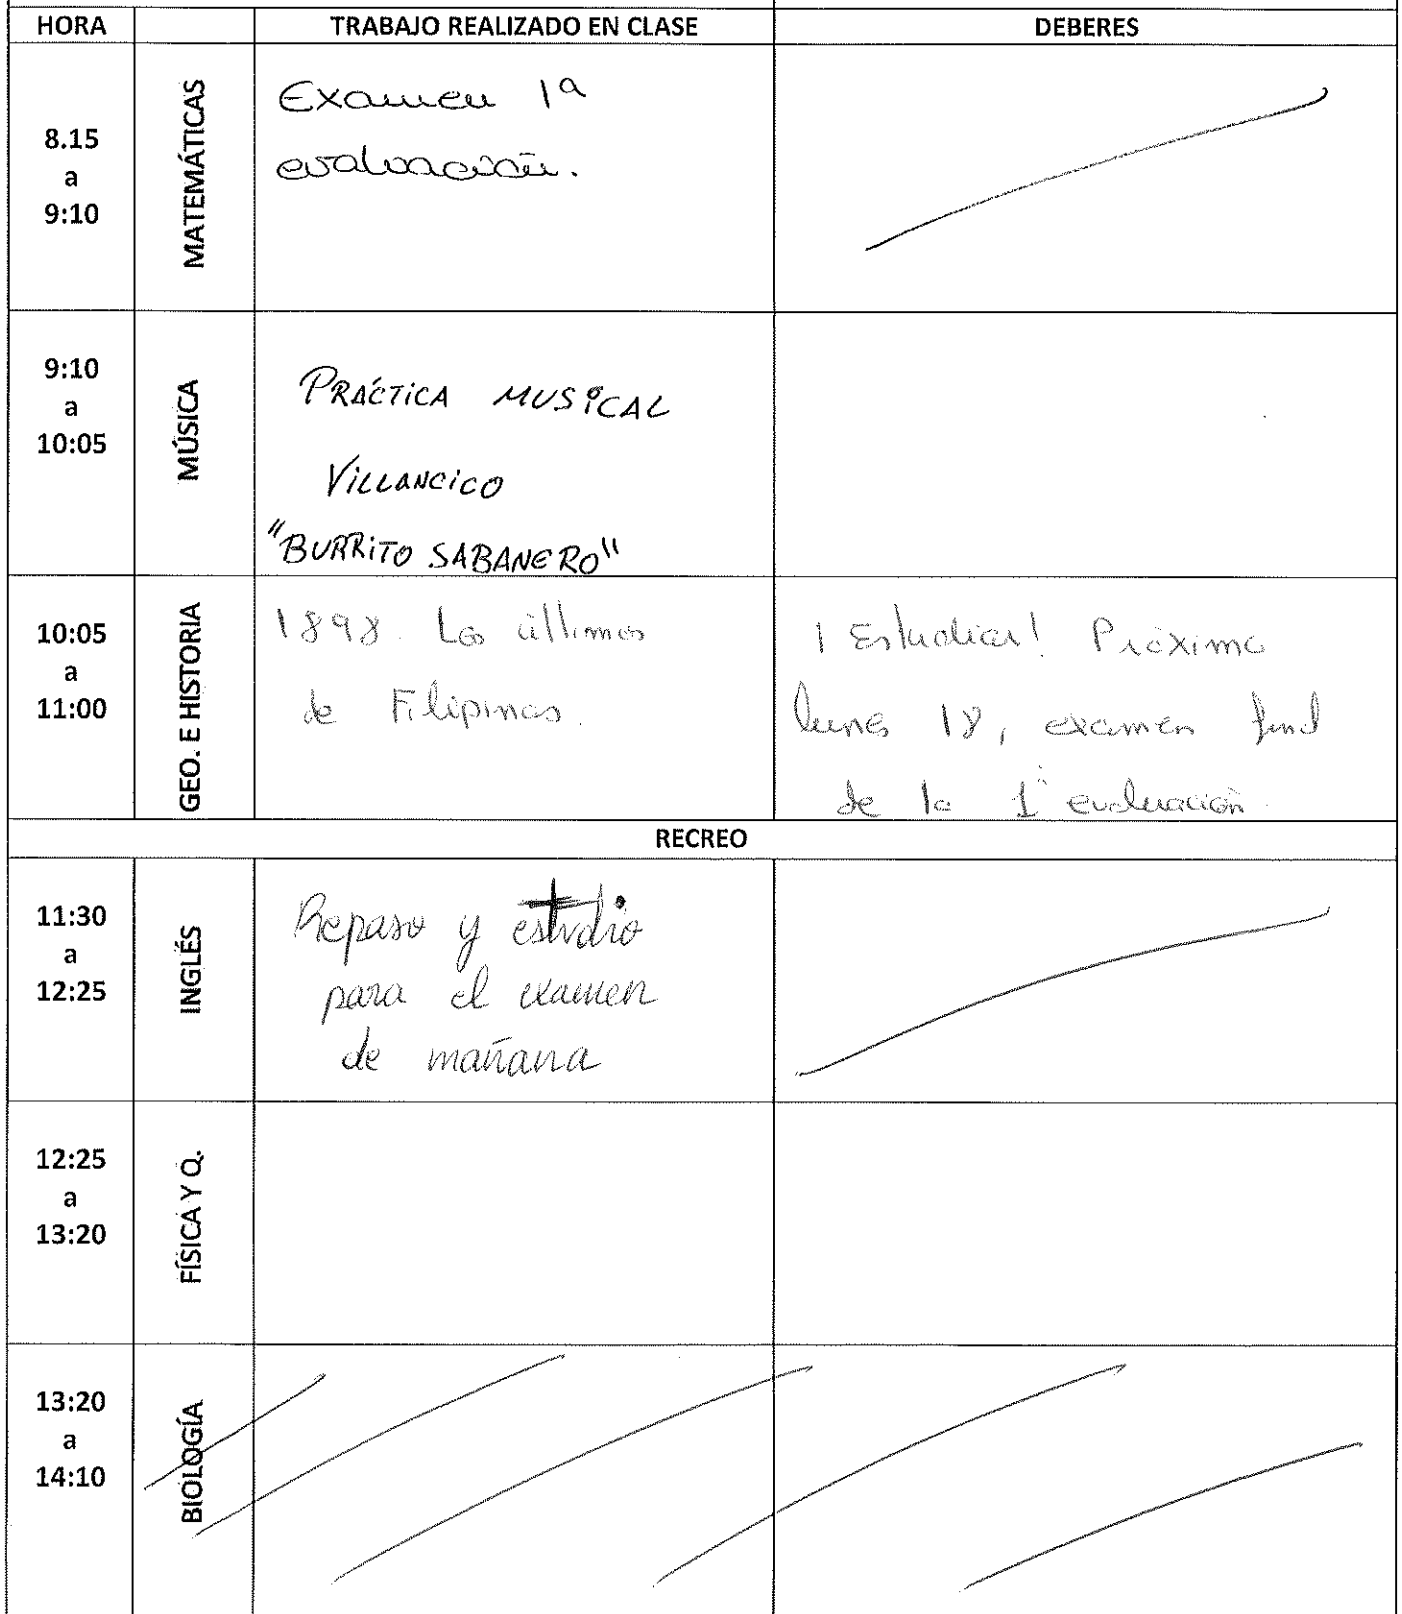 HORA TRABAJO REALIZADO EN CLASE DEBERES
8.15
a
9:10
MATEMÁTICAS
Examen 1ª
evaluación.
9:10
a
10:05
MÚSICA
PRÁCTICA MUSICAL
VILLANCICO
"BURRITO SABANERO"
10:05
a
11:00
GEO. E HISTORIA
1898. Los últimos
de Filipinas.
¡Estudiar! Próximo
lunes 18, examen final
de la 1ª evaluación.
RECREO
11:30
a
12:25
INGLÉS
Repaso y estudio
para el examen
de mañana
12:25
a
13:20
FÍSICA Y Q.
13:20
a
14:10
BIOLOGÍA